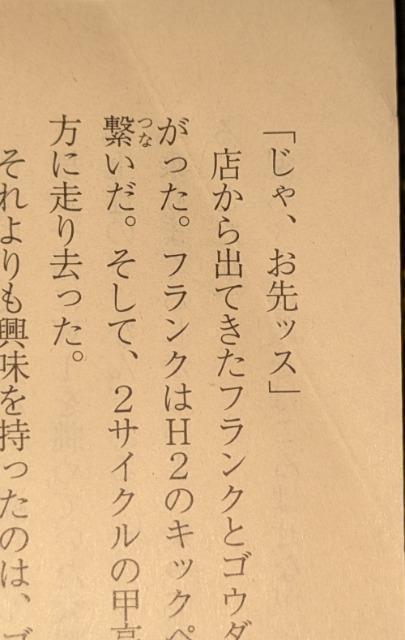 「じゃ、お先ッス」
店から出てきたフランクとゴウダ
がった。フランクはH2のキックペ
繋いだ。そして、2サイクルの甲高
方に走り去った。
それよりも興味を持ったのは、ゴ